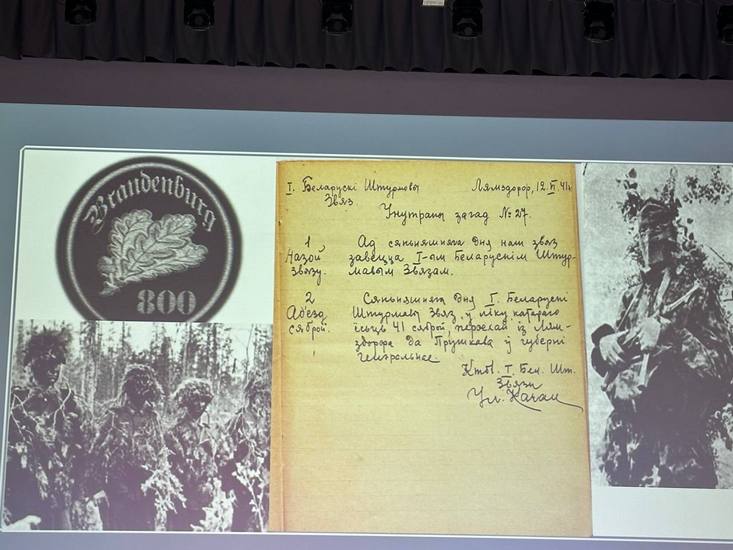 Brandenburg
800
I. Беларускі Штурмовы
Звяз.
Лямздорф, 12.VI.41г.
Унутраны загад №27.
1
Назоў
звязу.
Ад сяньняшняга дня наш звяз
завецца I-ым Беларускім Штур-
мавым Звязам.
2
Ад'езд
сяброў.
Сяньняшняга дня I. Беларускі
Штурмовы Звяз, ў ліку каторага
ёсьць 41 сяброў, пераехаў із Лям-
здорфа да Прушкова ў губерні
генеральнае.
I. Бел. Шт.
Звязу